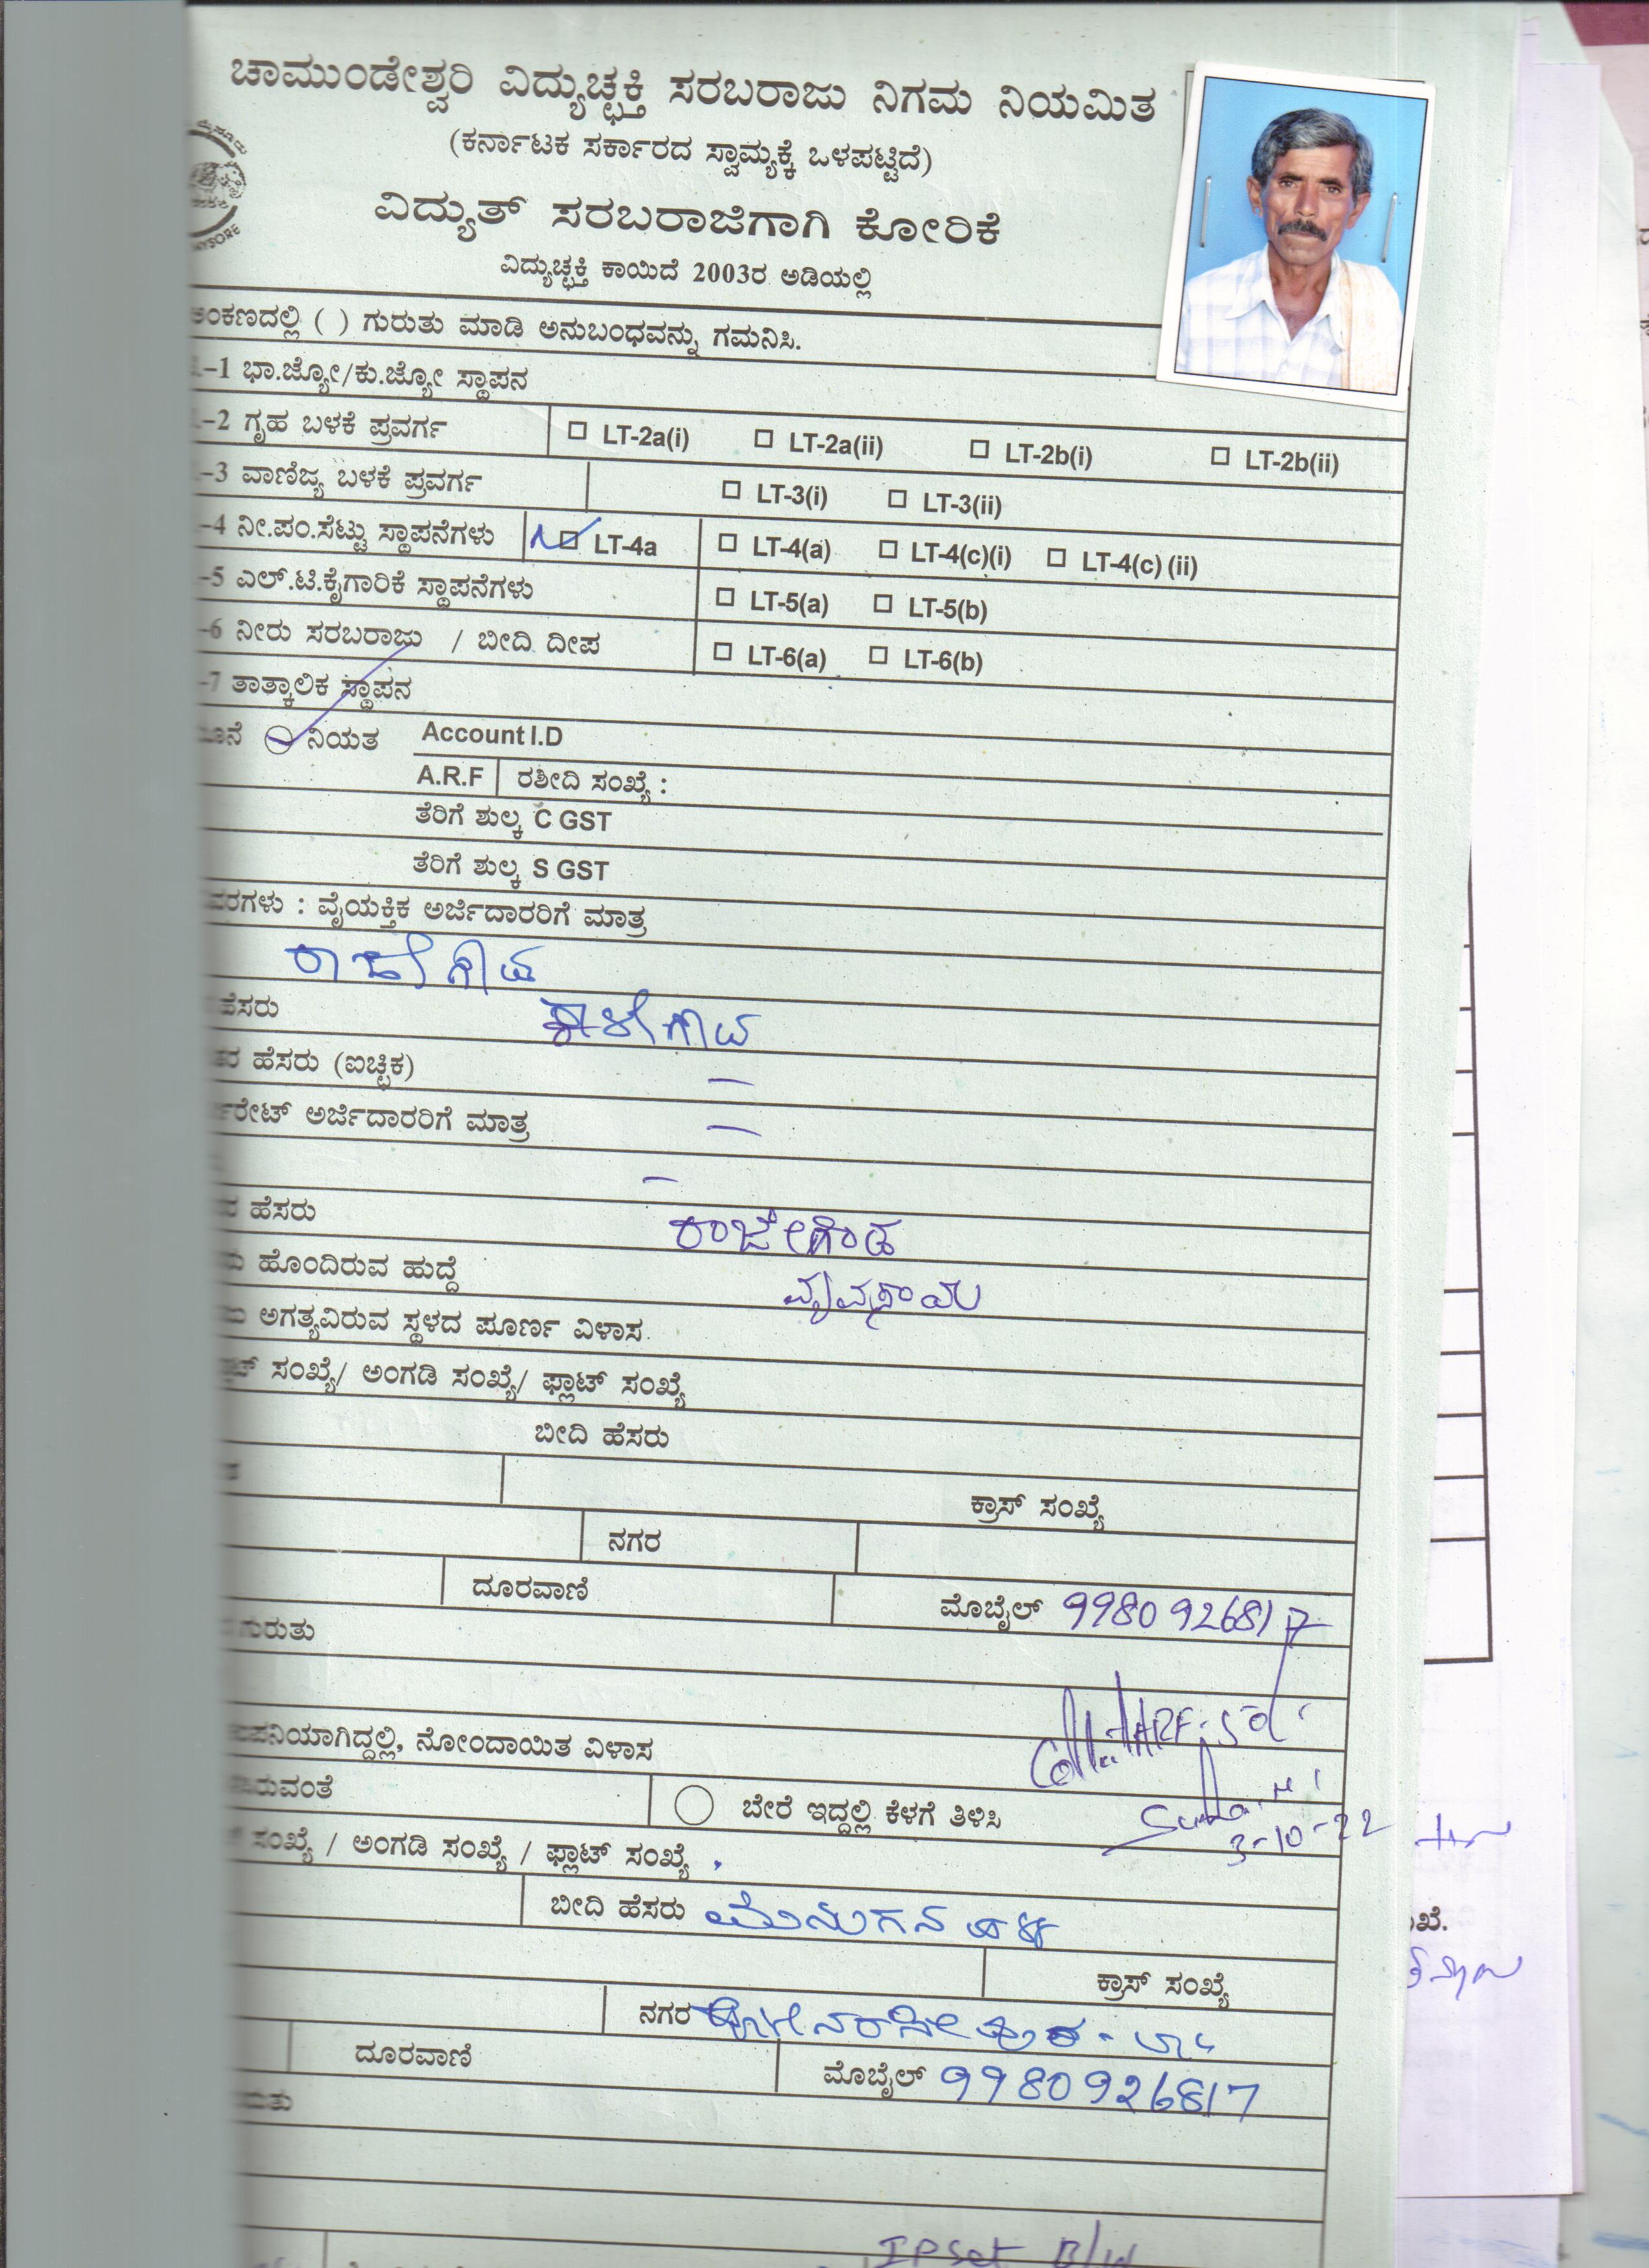 ಚಾಮುಂಡೇಶ್ವರಿ ವಿದ್ಯುಚ್ಛಕ್ತಿ ಸರಬರಾಜು ನಿಗಮ ನಿಯಮಿತ
(ಕರ್ನಾಟಕ ಸರ್ಕಾರದ ಸ್ವಾಮ್ಯಕ್ಕೆ ಒಳಪಟ್ಟಿದೆ)
ವಿದ್ಯುತ್ ಸರಬರಾಜಿಗಾಗಿ ಕೋರಿಕೆ
ವಿದ್ಯುಚ್ಛಕ್ತಿ ಕಾಯಿದೆ 2003ರ ಅಡಿಯಲ್ಲಿ
ಅಂಕಣದಲ್ಲಿ ( ) ಗುರುತು ಮಾಡಿ ಅನುಬಂಧವನ್ನು ಗಮನಿಸಿ.
-1 ಭಾ.ಜ್ಯೋ/ಕು.ಜ್ಯೋ ಸ್ಥಾಪನ
-2 ಗೃಹ ಬಳಕೆ ಪ್ರವರ್ಗ LT-2a(i) LT-2a(ii) LT-2b(i) LT-2b(ii)
-3 ವಾಣಿಜ್ಯ ಬಳಕೆ ಪ್ರವರ್ಗ LT-3(i) LT-3(ii)
-4 ನೀ.ಪಂ.ಸೆಟ್ಟು ಸ್ಥಾಪನೆಗಳು LT-4a LT-4(a) LT-4(c)(i) LT-4(c) (ii)
-5 ಎಲ್.ಟಿ.ಕೈಗಾರಿಕೆ ಸ್ಥಾಪನೆಗಳು LT-5(a) LT-5(b)
-6 ನೀರು ಸರಬರಾಜು / ಬೀದಿ ದೀಪ LT-6(a) LT-6(b)
-7 ತಾತ್ಕಾಲಿಕ ಸ್ಥಾಪನ
ನಿಯತ Account I.D
A.R.F ರಶೀದಿ ಸಂಖ್ಯೆ :
ತೆರಿಗೆ ಶುಲ್ಕ C GST
ತೆರಿಗೆ ಶುಲ್ಕ S GST
ವರಗಳು : ವೈಯಕ್ತಿಕ ಅರ್ಜಿದಾರರಿಗೆ ಮಾತ್ರ
ರಾಜೇಗೌಡ
ಹೆಸರು ಕಾಳೇಗೌಡ
ಹೆಸರು (ಐಚ್ಛಿಕ) —
ರೇಟ್ ಅರ್ಜಿದಾರರಿಗೆ ಮಾತ್ರ —
—
ಹೆಸರು ರಾಜೇಗೌಡ
ಹೊಂದಿರುವ ಹುದ್ದೆ ವ್ಯವಸಾಯ
ಅಗತ್ಯವಿರುವ ಸ್ಥಳದ ಪೂರ್ಣ ವಿಳಾಸ
ಸಂಖ್ಯೆ/ ಅಂಗಡಿ ಸಂಖ್ಯೆ/ ಫ್ಲಾಟ್ ಸಂಖ್ಯೆ
ಬೀದಿ ಹೆಸರು
ಕ್ರಾಸ್ ಸಂಖ್ಯೆ
ನಗರ
ದೂರವಾಣಿ ಮೊಬೈಲ್ 9980926817
ಗುರುತು
ARF
ಪನಿಯಾಗಿದ್ದಲ್ಲಿ, ನೋಂದಾಯಿತ ವಿಳಾಸ
ರುವಂತೆ ಬೇರೆ ಇದ್ದಲ್ಲಿ ಕೆಳಗೆ ತಿಳಿಸಿ
3-10-22
ಸಂಖ್ಯೆ / ಅಂಗಡಿ ಸಂಖ್ಯೆ / ಫ್ಲಾಟ್ ಸಂಖ್ಯೆ
ಬೀದಿ ಹೆಸರು
ಕ್ರಾಸ್ ಸಂಖ್ಯೆ
ನಗರ
ದೂರವಾಣಿ ಮೊಬೈಲ್ 9980926817
IP Set